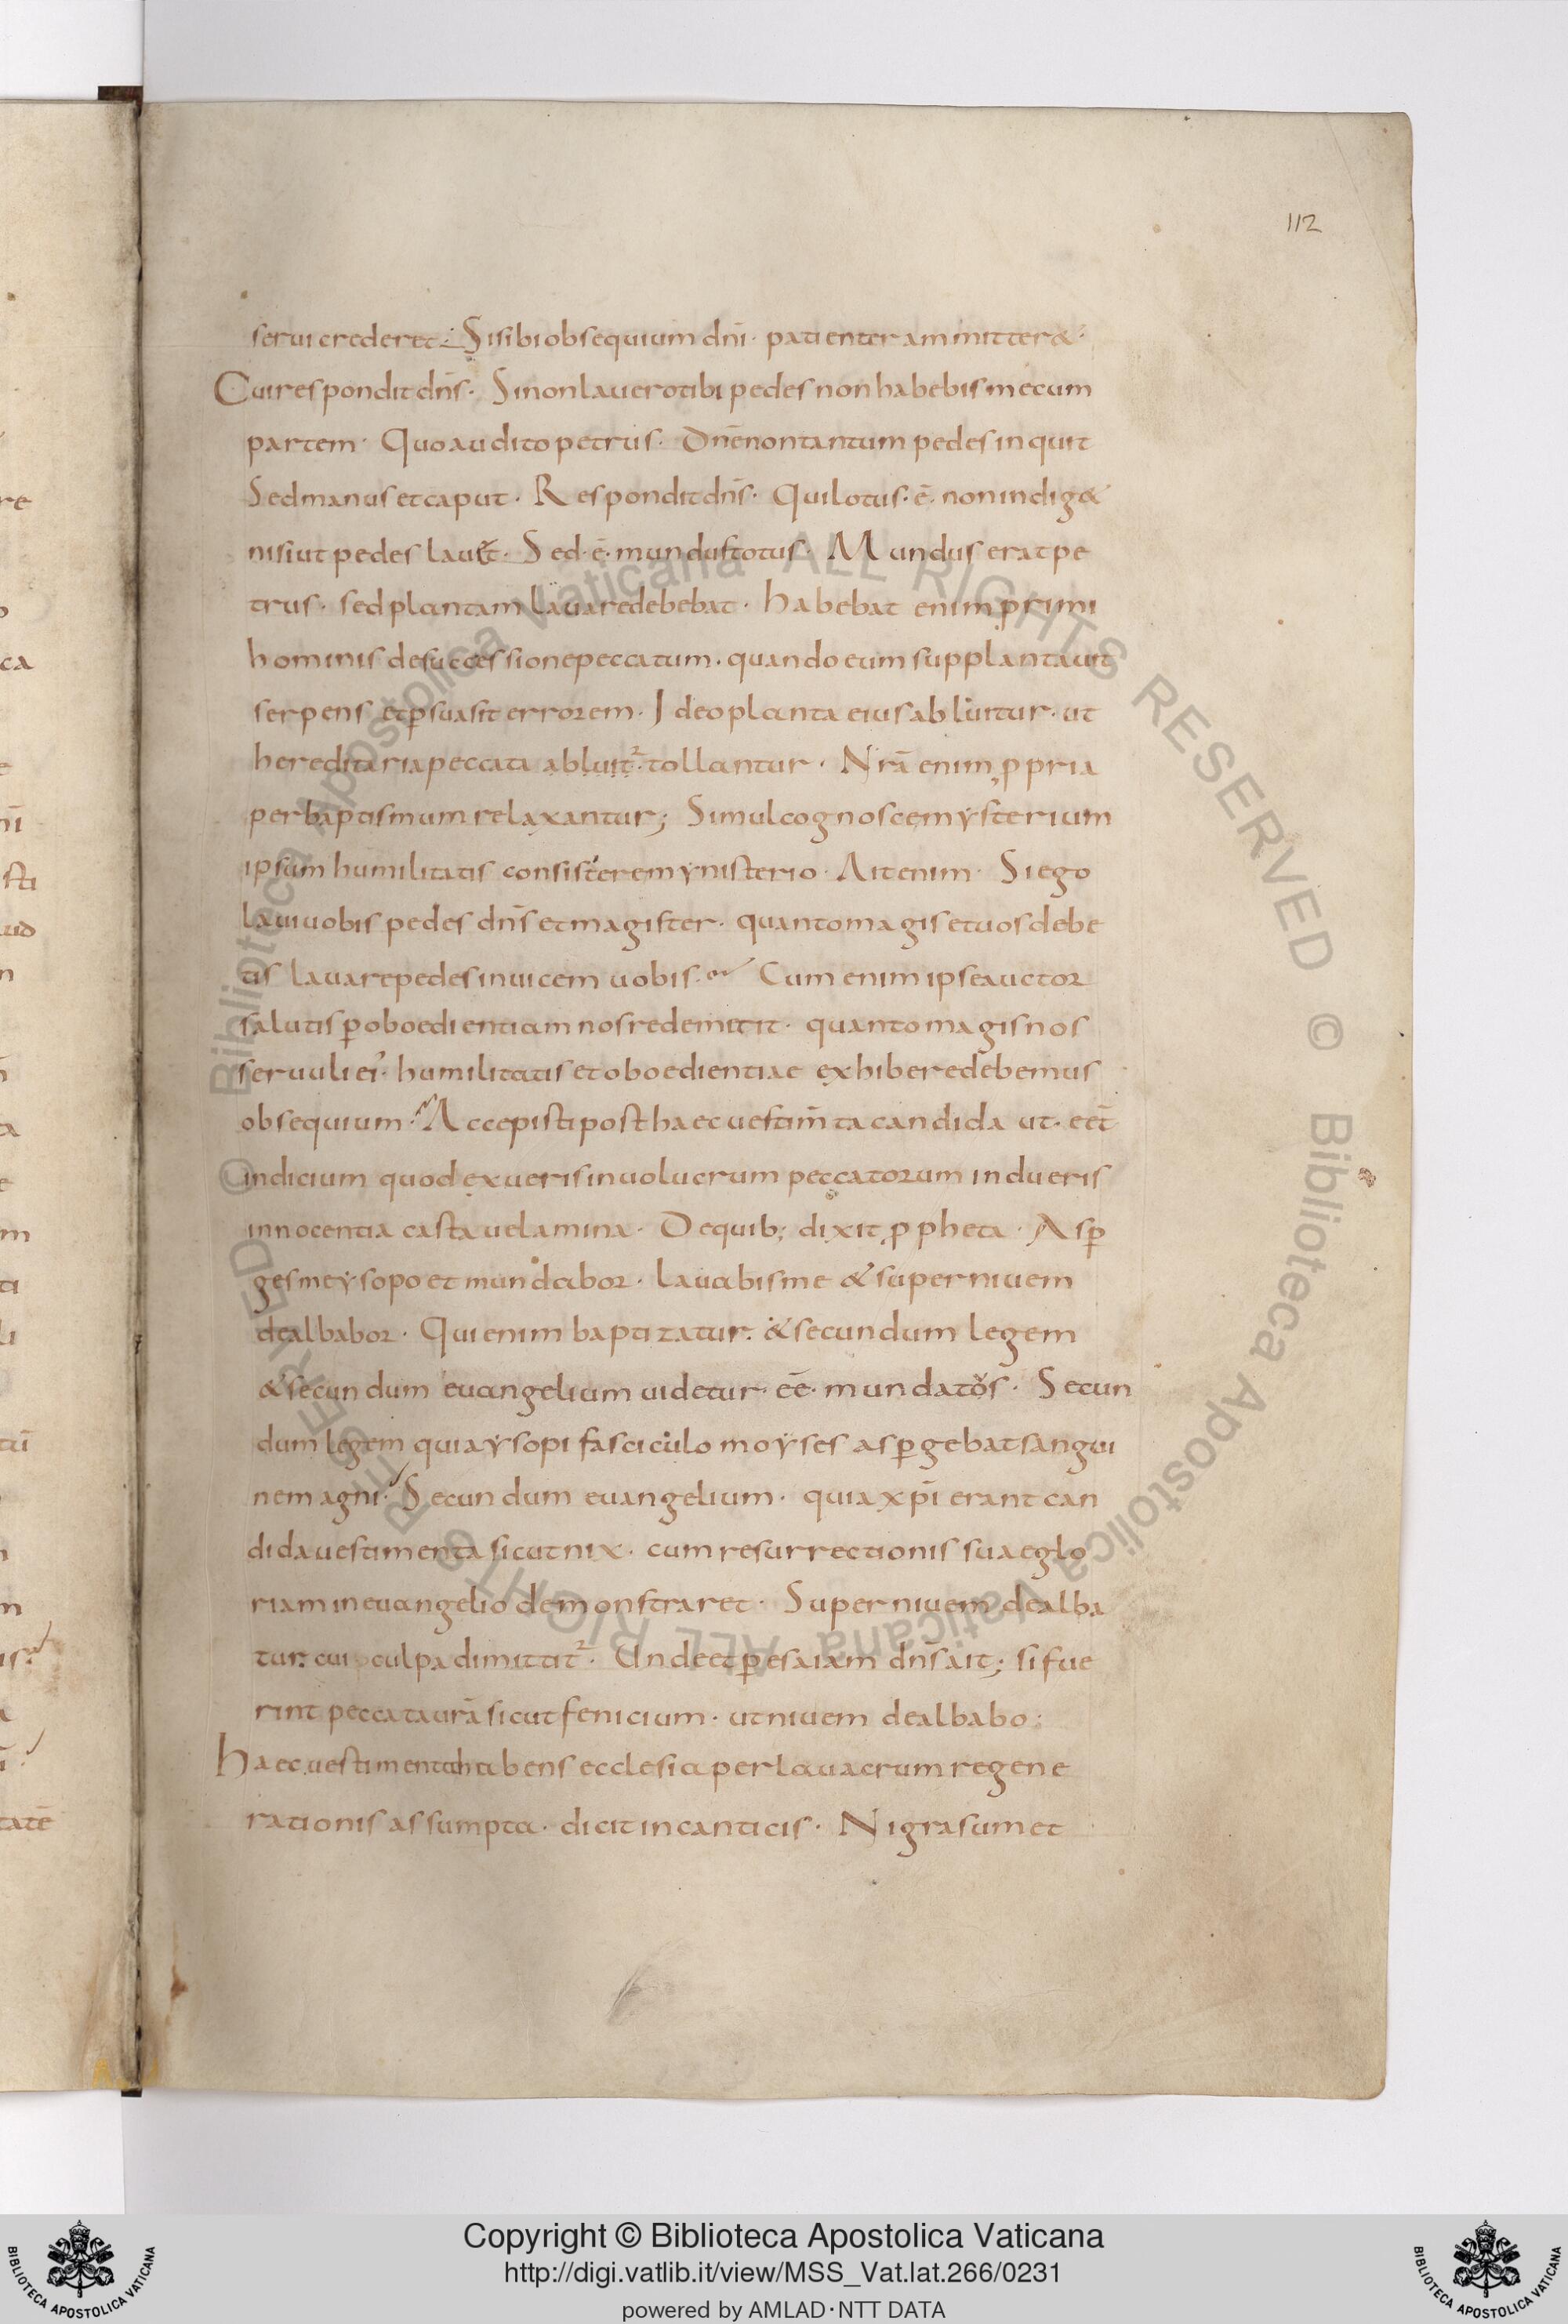 112
serui crederet. Si sibi obsequium dn̄i. patienter ammitter&.
Cui respondit dn̄s. Si non lauero tibi pedes non habebis mecum
partem. Quo audito petrus. Dn̄e non tantum pedes inquit
Sed manus et caput. Respondit dn̄s. Qui lotus. ē. non indig&
nisi ut pedes
Sed. ē. mundus totus. Mundus erat pe
trus. sed plantam lauare debebat. habebat enim primi
hominis de successione peccatum. quando eum supplantauit
serpens et p̄suasit errorem. Ideo planta eius abluitur. ut
hereditaria peccata abluit². tollantur. Nrā enim ꝓpria
per baptismum relaxantur; Simul cognosce mysterium
ipsum humilitatis consistere mynisterio. Ait enim. Si ego
laui uobis pedes dn̄s et magister. quanto magis et uos debe
tis lauare pedes inuicem uobis. Cum enim ipse auctor
salutis p̄ oboedientiam nos redemit. quanto magis nos
seruuli ei'. humilitatis et oboedientiae exhibere debemus
obsequium. Accepisti post haec uestim̄ta candida ut. eēt
indicium quod exueris inuolucrum peccatorum indueris
innocentia casta uelamina. De quib; dixit ꝓpheta. Asp̄
ges me ysopo et mundabor. lauabis me & super niuem
dealbabor. Qui enim baptizatur. & secundum legem
& secundum euangelium uidetur. eē. mundatos. Secun
dum legem quia ysopi fasciculo moyses asp̄gebat sangui
nem agni. Secundum euangelium. quia xp̄i erant can
dida uestimenta sicut nix. cum resurrectionis suae glo
riam in euangelio demonstraret. Super niuem dealba
tur. cui culpa dimittit². Unde et p̄ esaiam dn̄s ait; si fue
rint peccata urā sicut fenicium. ut niuem dealbabo;
haec uestimenta habens ecclesia per lauacrum regene
rationis assumpta. dicit in canticis. Nigra sum et
© Biblioteca Apostolica Vaticana ALL RIGHTS RESERVED © Biblioteca Apostolica Vaticana ALL RIGHTS RESERVED
Copyright © Biblioteca Apostolica Vaticana
http://digi.vatlib.it/view/MSS_Vat.lat.266/0231
powered by AMLAD・NTT DATA
BIBLIOTECA APOSTOLICA VATICANA
BIBLIOTECA APOSTOLICA VATICANA